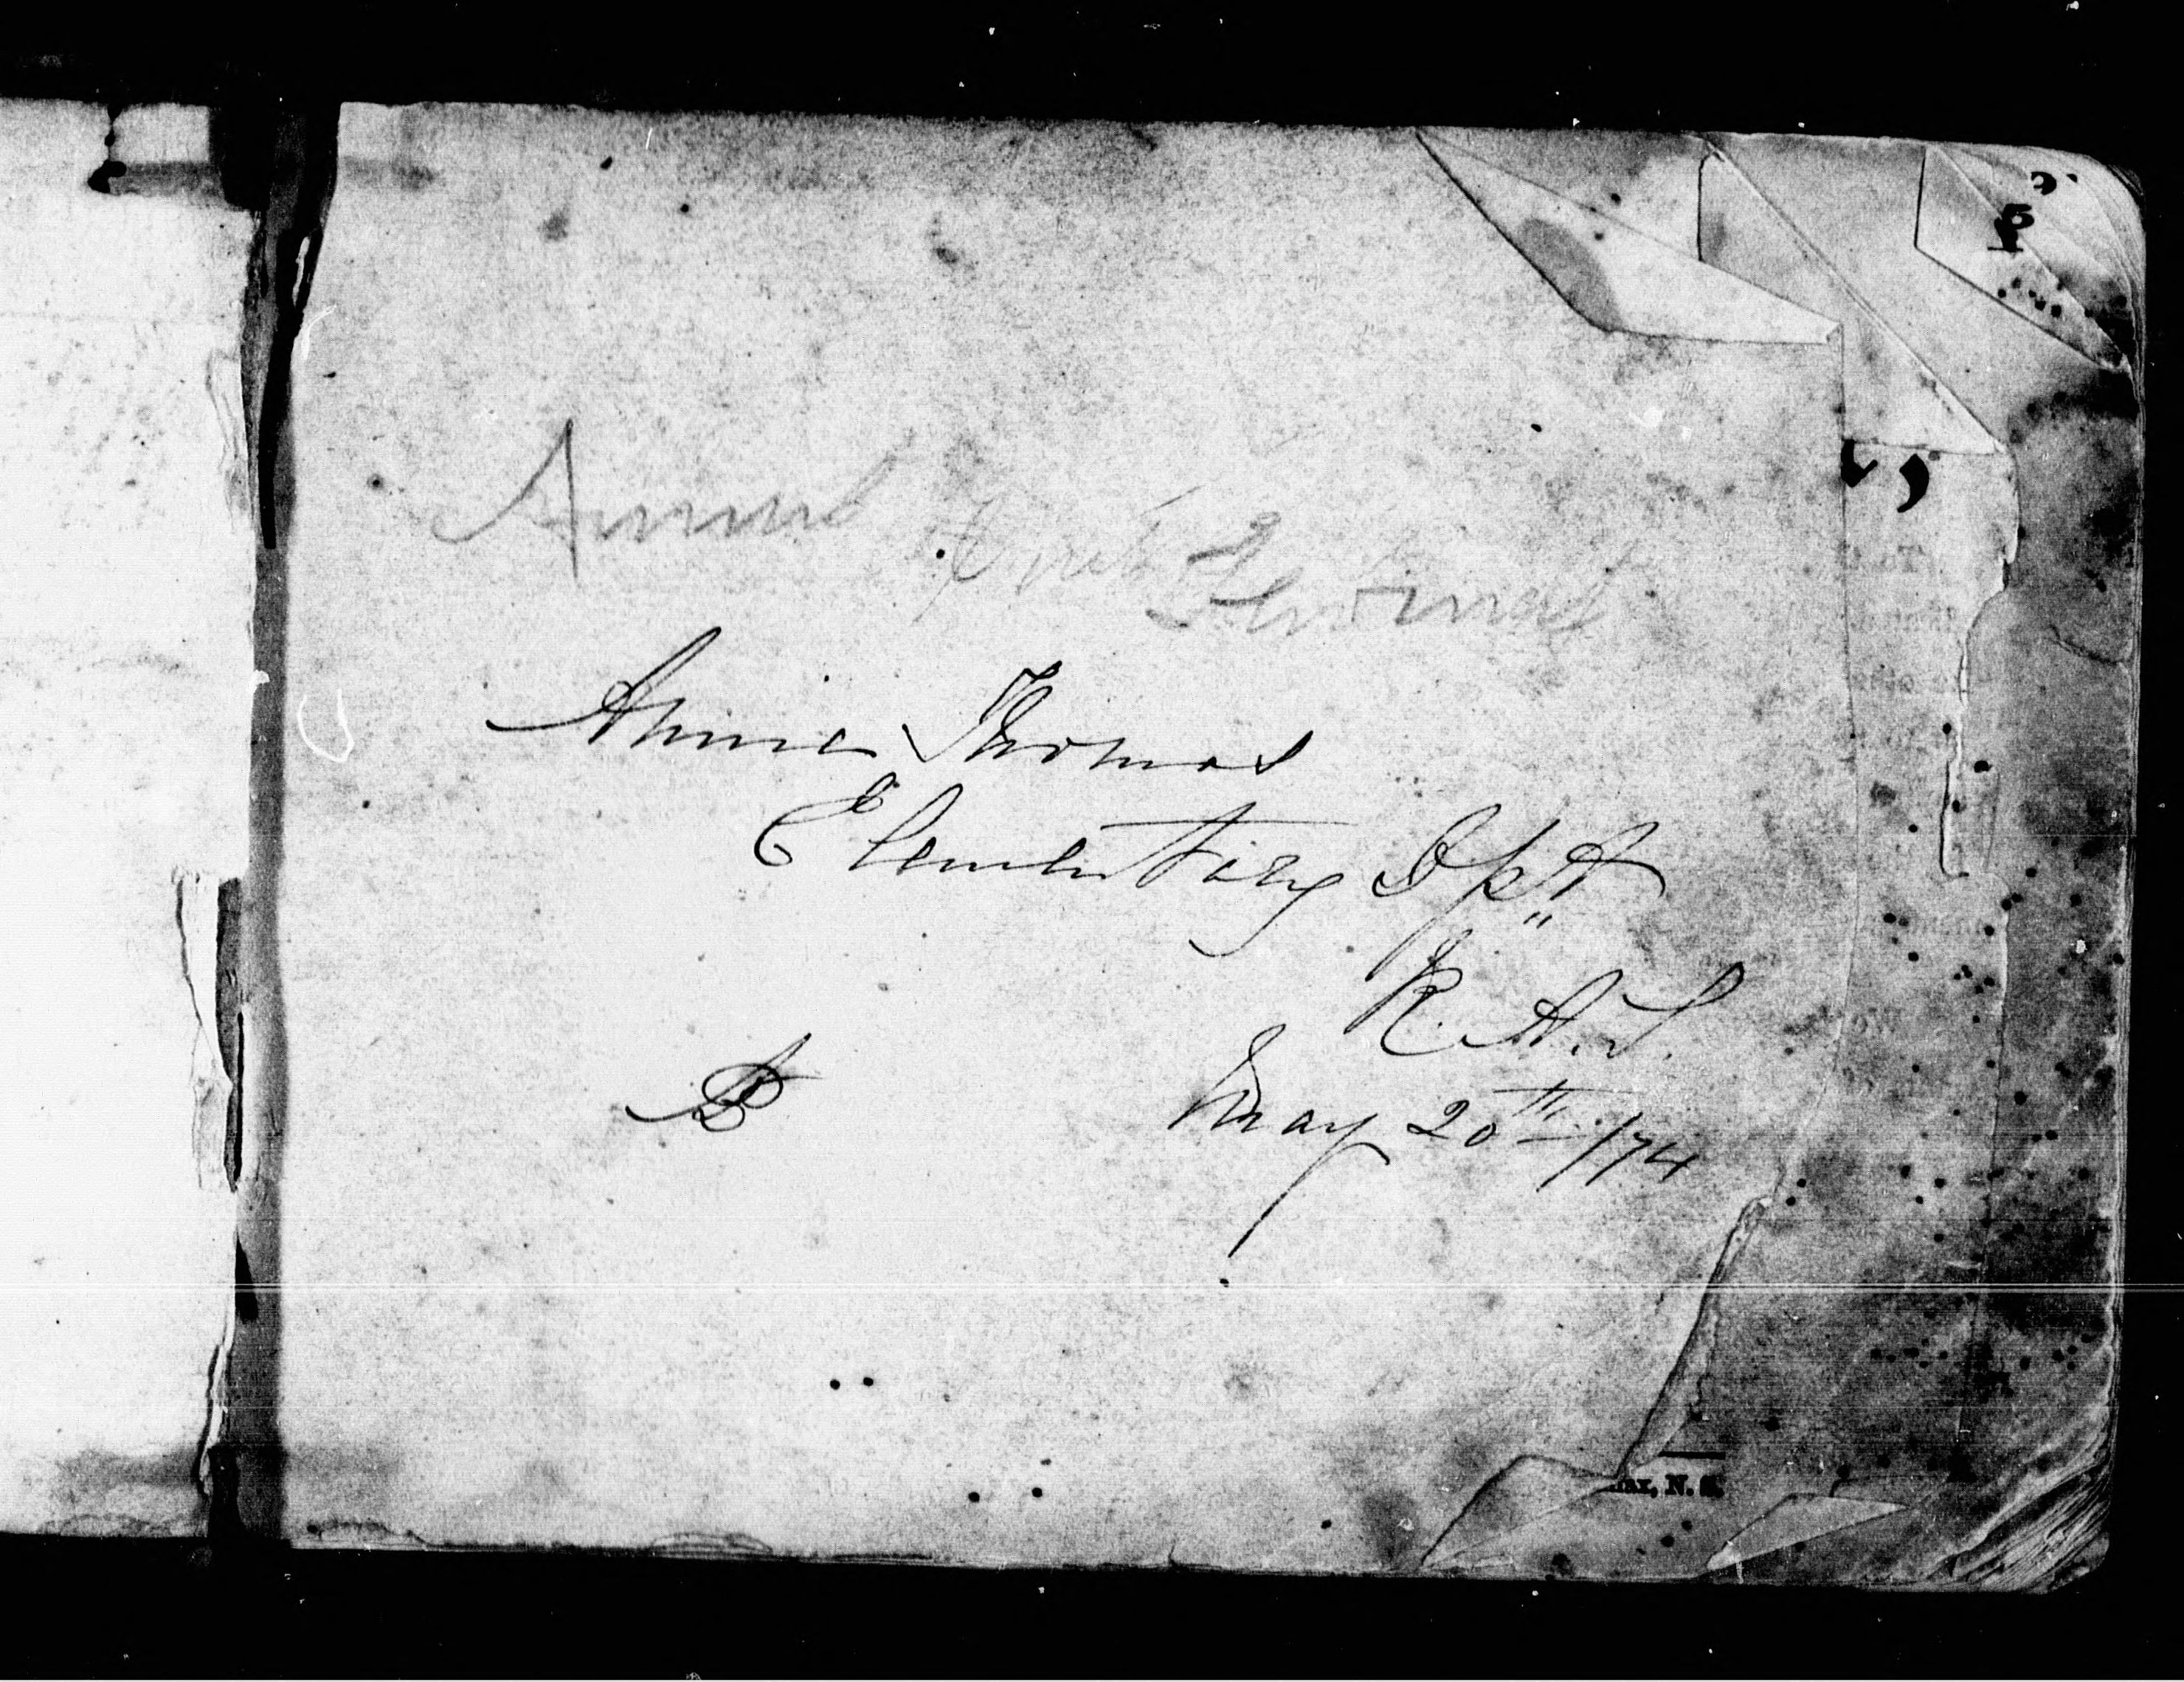 Annie
Annie Thomas
Elementary Dpt
R. A. S.
May 20th /74
N. S.